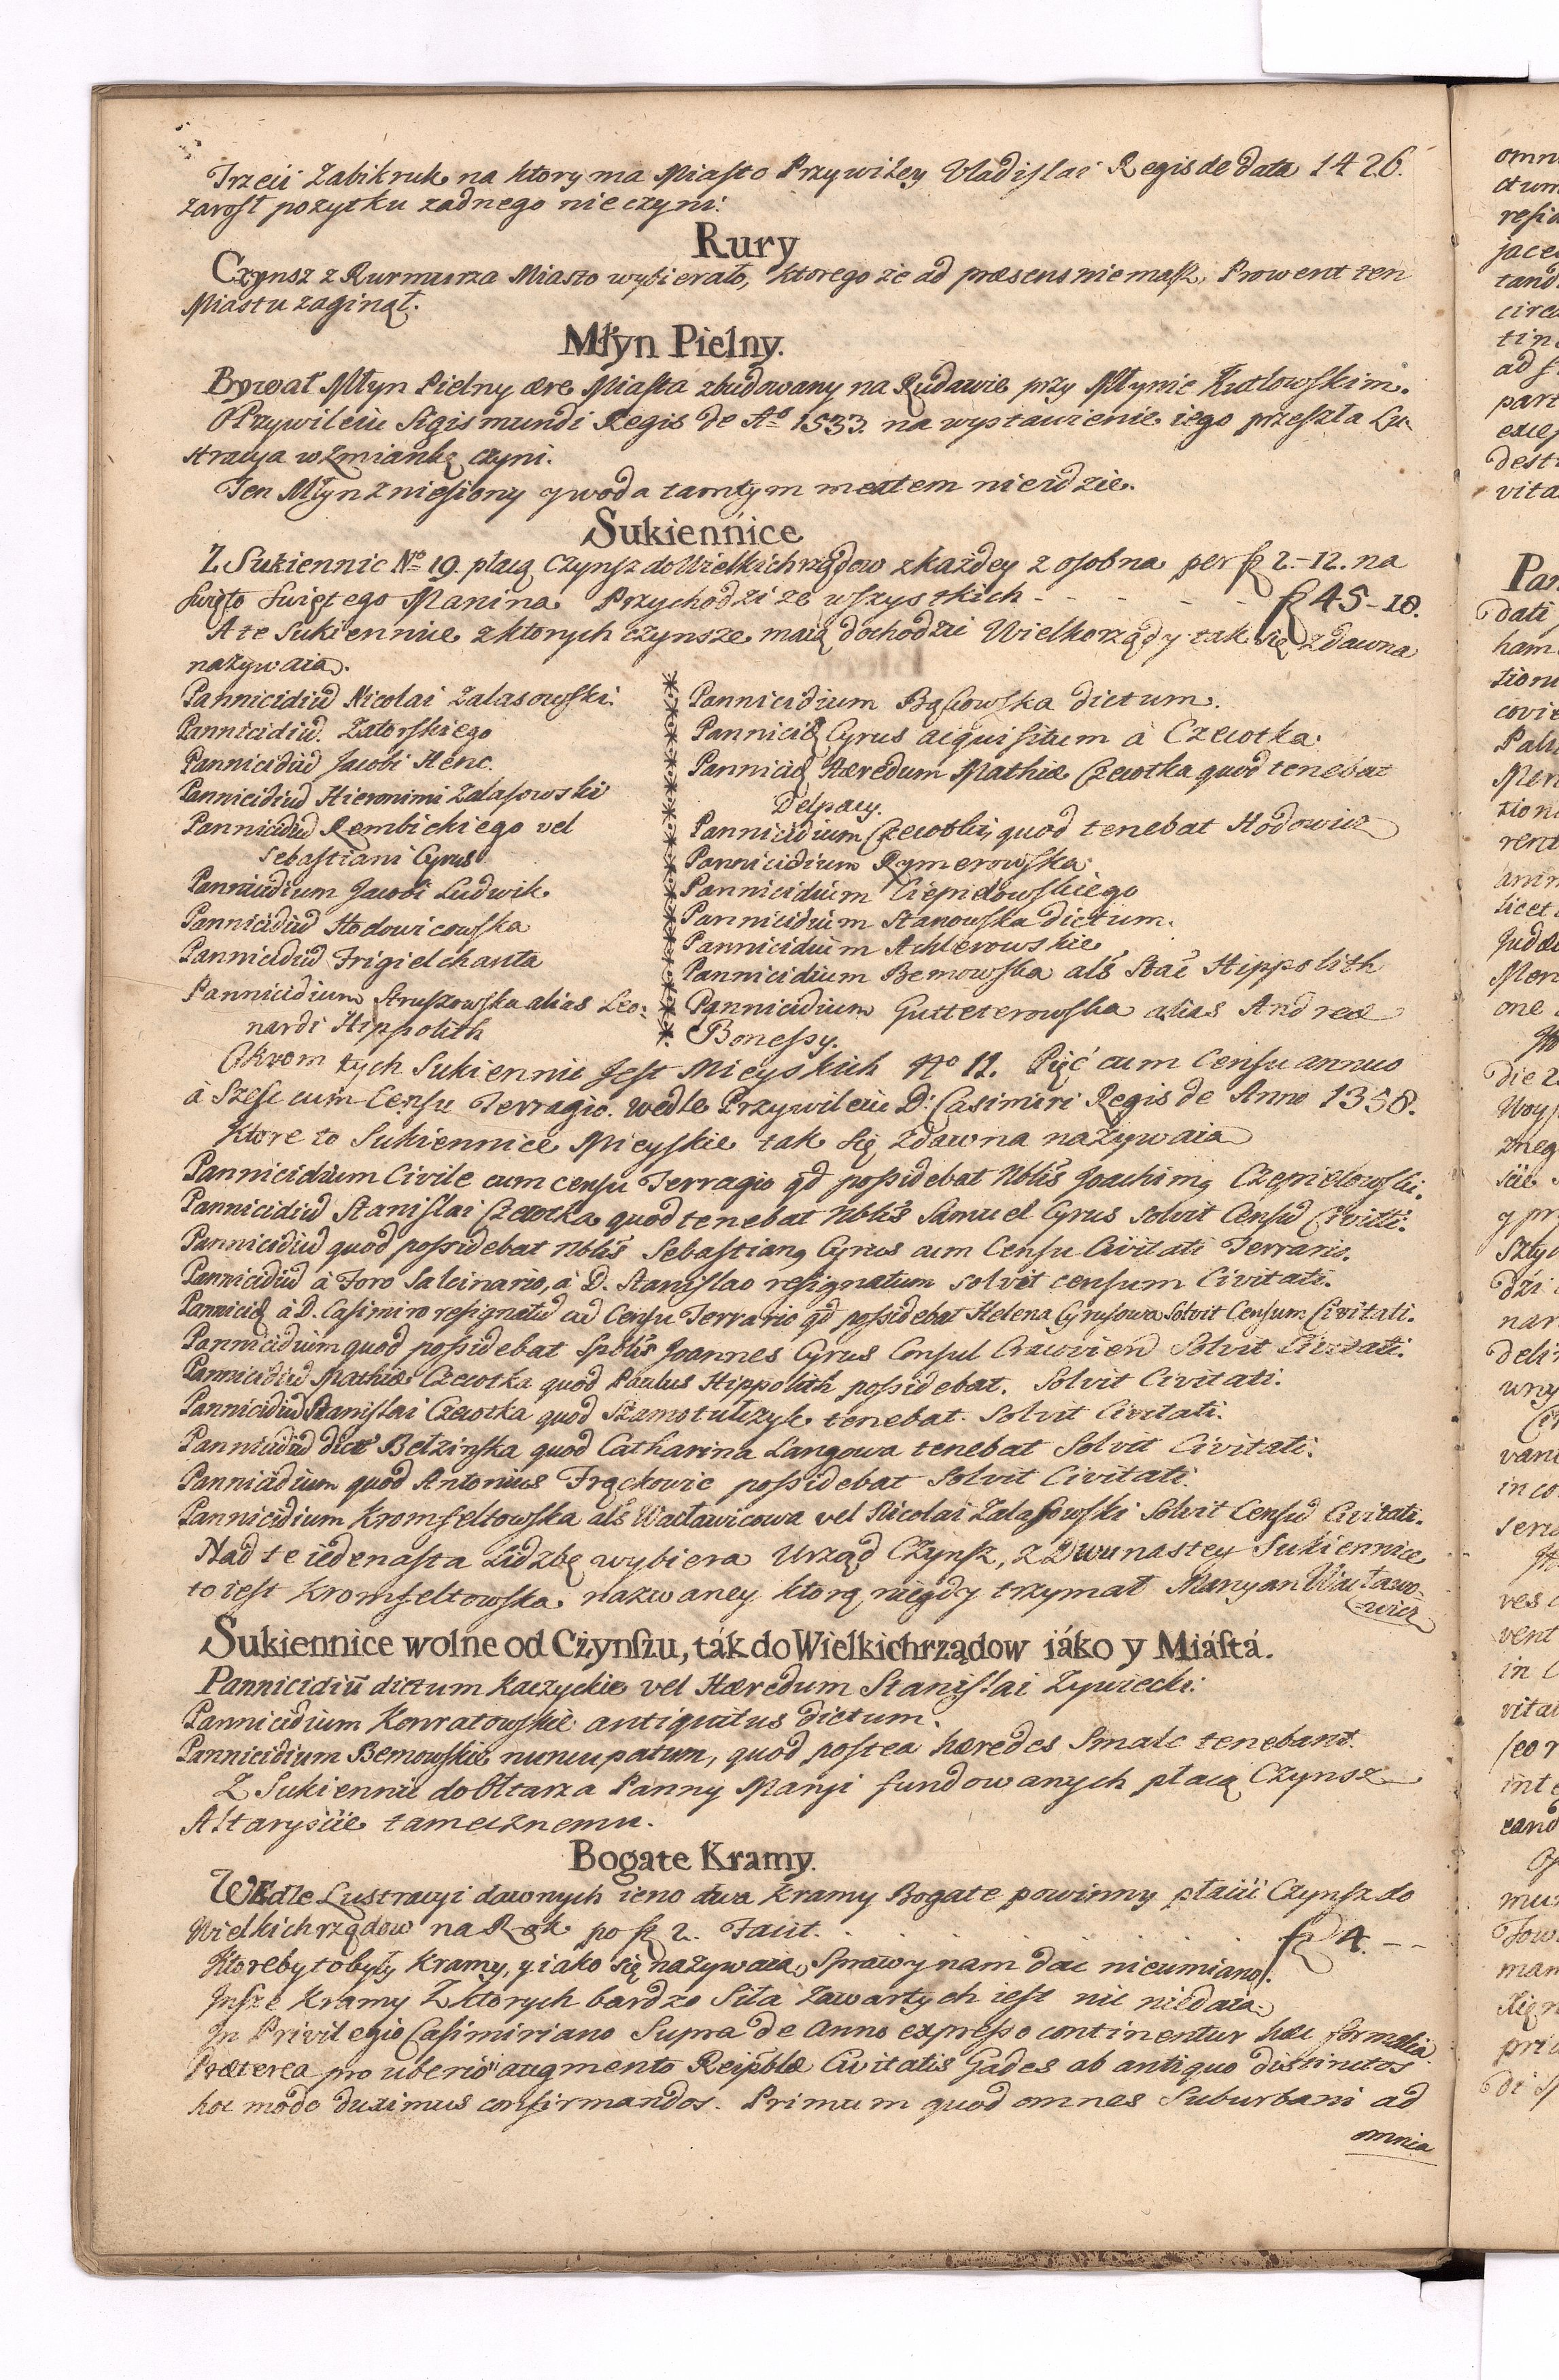 Trzeci Zabikruk na ktory ma Miasto Przywiley Vladislai Regis de Data 1426.
zarosł pozytku zadnego nie czyni.
Rury
Czynsz z Rurmusza Miasto wybierało, ktorego że ad præsens niemasz, Prowent ten
Miastu zaginął.
Młyn Pielny.
Bywał Młyn Pielny ære Miasta zbudowany na Rudawie przy Młynie Kutlowskim.
O Przywileiu Sigismundi Regis de Aº 1533. na wystawienie iego przeszła Lu-
stracya wzmiankę czyni.
Ten Młyn zniesiony y woda tamtym meatem nieidzie.
Sukiennice
Z Sukiennic Nº 19. płacą Czynsz do Wielkichrządow z każdey z osobna per fl 2.-12. na
Swięto Swiętego Marcina Przychodzi ze wszystkich - - - - - - fl 45-18.
A te Sukiennice z ktorych czynsze maią dochodzić Wielkorządy tak się zdawna
nazywaią.
Pannicidiū Nicolai Zalasowski.
Pannicidiū Zatorskiego
Pannicidiū Jacobi Henc.
Pannicidiū Hieronimi Zalasowski
Pannicidiū Rembickiego vel
Sebastiani Cyrus
Pannicidium Jacobi Ludwik.
Pannicidiū Hodowicowska
Pannicidiū Frigielchanta
Pannicidium Struszowska alias Leo-
nardi Hippolith
Pannicidium Bąkowska dictum.
Pannicid Cyrus acquisitum à Czeczotka.
Pannicid Hæredum Mathiæ Czeczotka quod tenebat
Delpacy.
Pannicidium Czeczotki, quod tenebat Hodowicz
Pannicidium Rymerowska
Pannicidium Ciepielowskiego
Pannicidium Stanowska dictum.
Pannicidium Achlerowskie
Pannicidium Bemowska als Stai Hippolith
Pannicidium Gutteterowska alias Andreæ
Bonessy.
Okrom tych Sukiennic Jest Mieyskich Nº 12. Pięć cum Censu annuo
à Szesc cum Censu Terragio. Wedle Przywileiu D: Casimiri Regis de Anno 1358.
Ktore to Sukiennice Mieyskie tak się zdawna nazywaia
Pannicidium Civile cum censu Terragio qd possidebat Nblis Joachimg Czepielowski.
Pannicidiū Stanislai Czeczotka quod tenebat Nblis Samuel Cyrus solvit Censū Civitti.
Pannicidiū quod possidebat Nblis Sebastiang Cyrus cum Censu Civitati Terrario.
Pannicidiū à Foro Salcinario, à D. Stanislao resignatum solvit censum Civitati.
Pannicid à D. Casimiro resignatū ad Censu Terrario qd possidebat Helena Cyrusowa Solvit Censum Civitati.
Pannicidium quod possidebat Spblis Joannes Cyrus Consul Cracovien Solvit Civitati.
Pannicidiū Mathiæ Czeczotka quod Paulus Hippolith possidebat. Solvit Civitati.
Pannicidiū Stanislai Czeczotka quod Szamotulczyk tenebat. Solvit Civitati.
Pannicidiū dict Bełzinska quod Catharina Langowa tenebat Solvit Civitati.
Pannicidium quod Antonius Frąckowic possidebat Solvit Civitati.
Pannicidium Kromfeltowska als Wacławicowa vel Nicolai Zalasowski Solvit Censū Civitati.
Nad te iedenasta Lidzbę wybiera Urząd Czynsz, z Dwunastey Sukiennice
to iest Kromfeltowska nazwaney ktorą niegdy trzymał Maryan Wacławo-
wicz
Sukiennice wolne od Cżynszu, ták do Wielkichrządow iáko y Miástá.
Pannicidiū dictum Kaczyckie vel Hæredum Stanislai Zywiecki.
Pannicidium Konratowskie antiquitus dictum.
Pannicidium Bemowskie nuncupatum, quod postea hæredes Smalc tenebant.
Z Sukiennic do Ołtarza Panny Maryi fundowanych płacą Czynsz
Altaryscie tamecznemu.
Bogate Kramy.
Wedle Lustracyi dawnych ieno dwa Kramy Bogate powinny płacić Czynsz do
Wielkichrządow na Rok po fl 2. Facit. . . . . . . fl 4. - -
Ktoreby to były Kramy, y iako się nazywaią, Sprawy nam dac nieumiano.
Insze Kramy z ktorych bardzo Siła zawartych iest nic niedaią.
In Privilegio Casimiriano Supra de Anno expresso continentur hæc formalia.
Præterea pro uberiori augmento Reipblæ Civitatis Gades ab antiquo distinctos
hoc modo duximus confirmandos. Primum quod omnes Suburbani ad
omnia